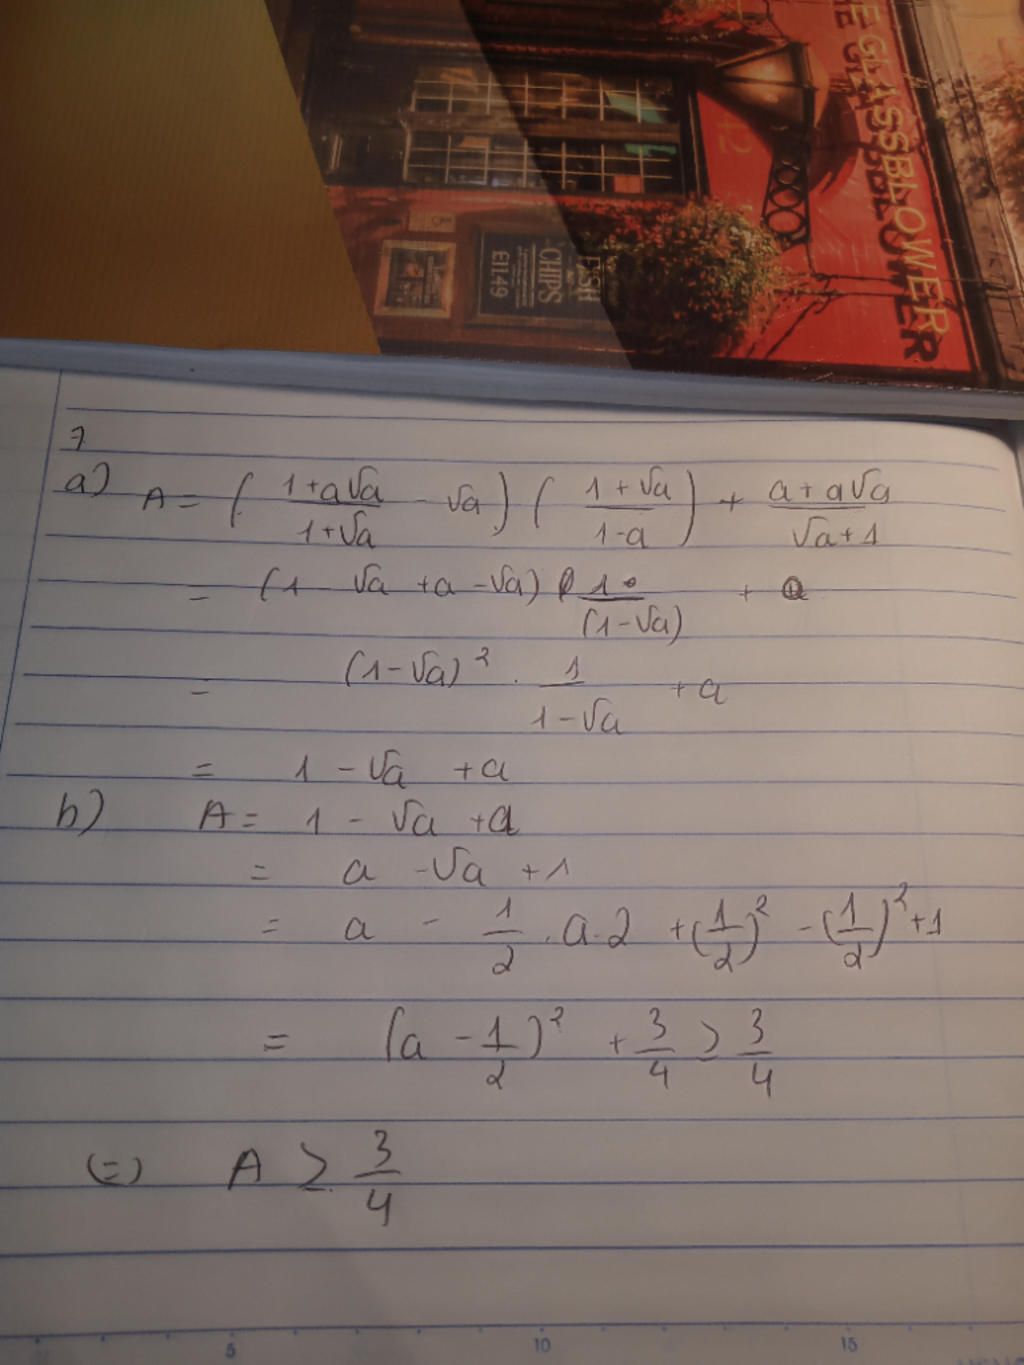 THE GLASSBLOWER
42
FISH
CHIPS
E11.49
7
a) A = ( \frac{1+a√a}{1+√a} - √a ) ( \frac{1+√a}{1-a} ) + \frac{a+a√a}{√a+1}
= (1 √a + a - √a) \frac{1}{(1-√a)} + a
= (1-√a)² . \frac{1}{1-√a} + a
= 1 - √a + a
b) A = 1 - √a + a
= a - √a + 1
= a - \frac{1}{2} . a . 2 + (\frac{1}{2})² - (\frac{1}{2})² + 1
= (a - \frac{1}{2})² + \frac{3}{4} ≥ \frac{3}{4}
(=) A ≥ \frac{3}{4}
5 10 15